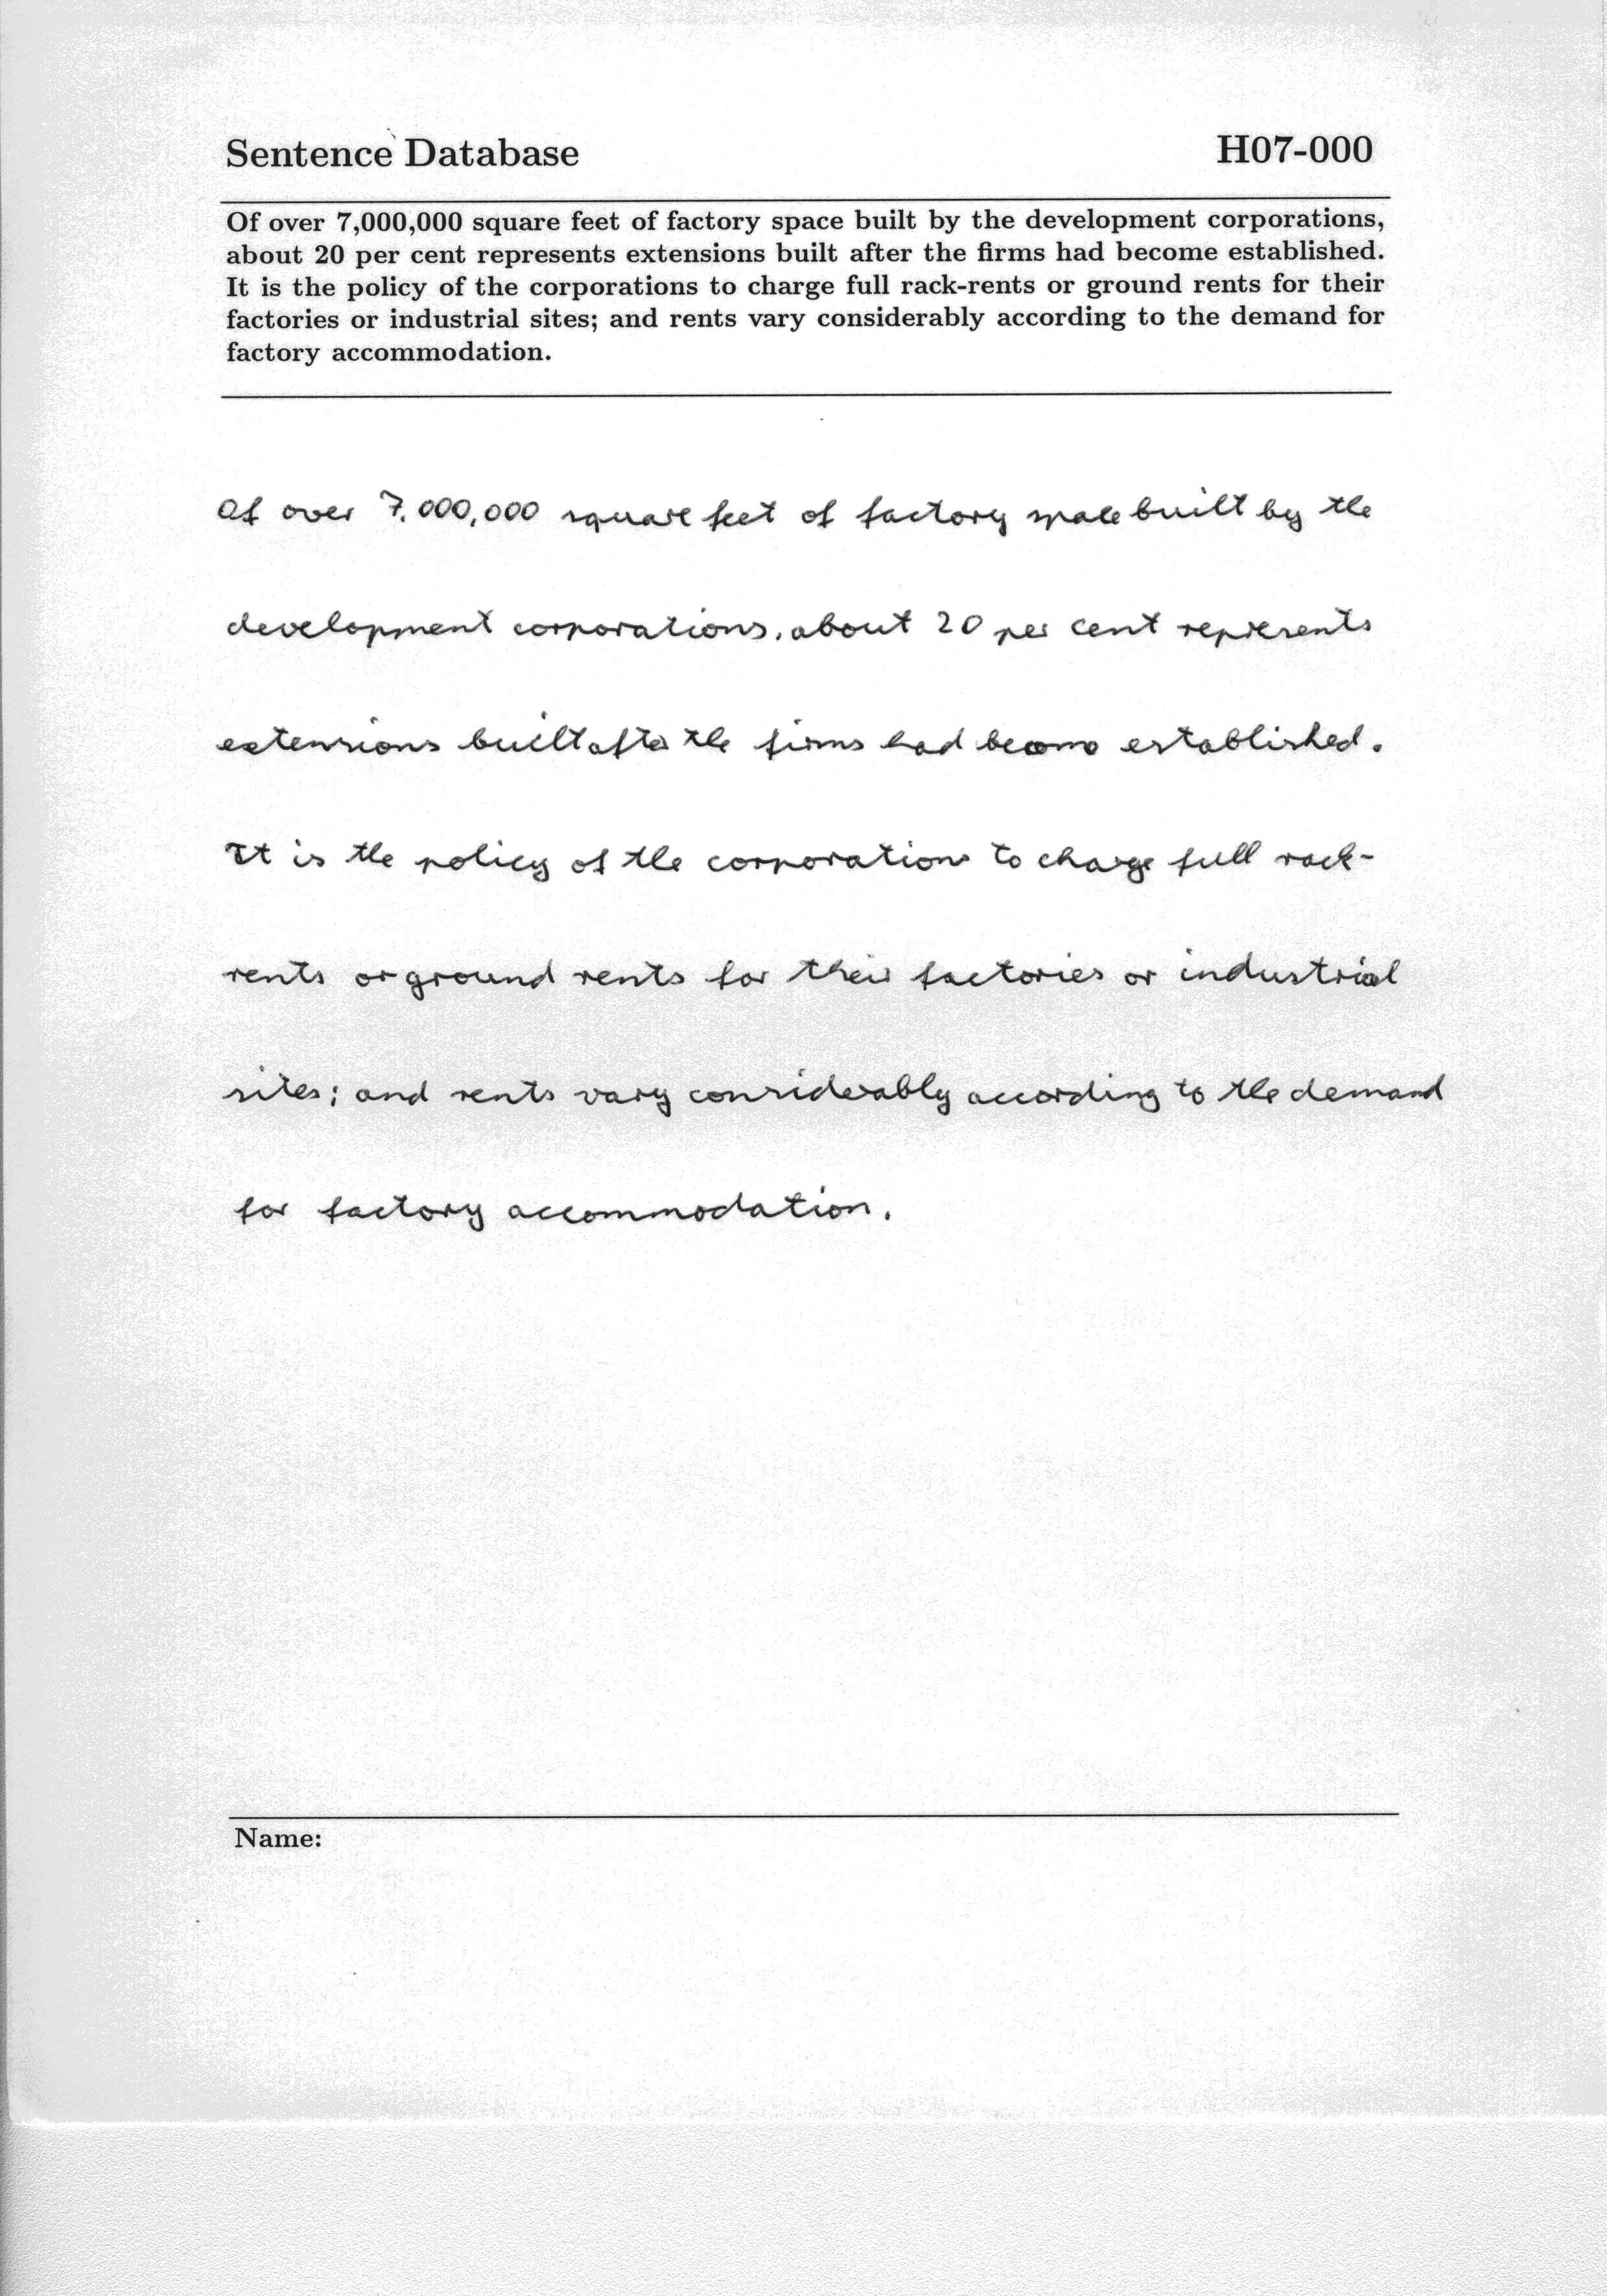 Sentence Database H07-000
Of over 7,000,000 square feet of factory space built by the development corporations,
about 20 per cent represents extensions built after the firms had become established.
It is the policy of the corporations to charge full rack-rents or ground rents for their
factories or industrial sites; and rents vary considerably according to the demand for
factory accommodation.
Of over 7,000,000 square feet of factory space built by the
development corporations, about 20 per cent represents
extensions built after the firms had become established.
It is the policy of the corporations to charge full rack-
rents or ground rents for their factories or industrial
sites; and rents vary considerably according to the demand
for factory accommodation.
Name: